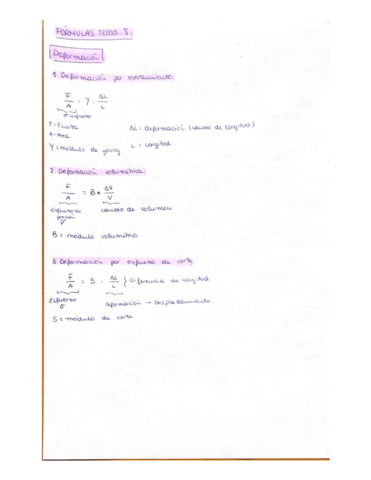 FÓRMULAS TEMA 8
Deformación
1. Deformación por estiramiento
F/A = Y · ΔL/L
σ = esfuerzo
F = Fuerza
A = Área
Y = módulo de young
ΔL = deformación (cambio de longitud)
L = longitud
2. Deformación volumétrica
F/A = B · ΔV/V
esfuerzo
presión
P
cambio de volumen
B = módulo volumétrico
3. Deformación por esfuerzo de corte
F/A = S · ΔL/L } Diferencia de longitud
Esfuerzo
σ
Deformación → Desplazamiento
S = módulo de corte